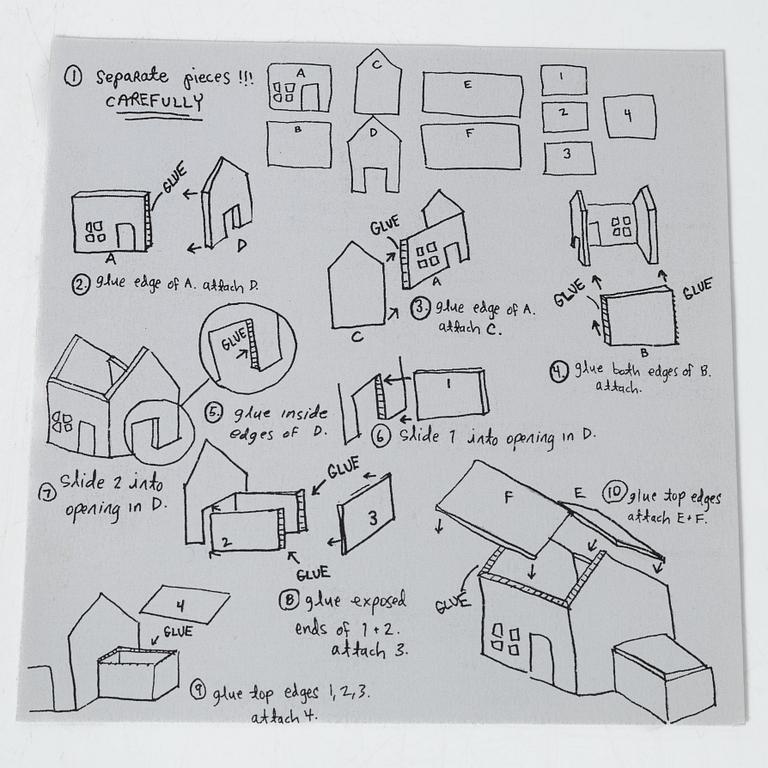 ① Separate pieces !!!
CAREFULLY
A
C
E
1
2
4
B
D
F
3
GLUE
A
D
②. glue edge of A. attach D.
GLUE
A
C
③. glue edge of A.
attach C.
GLUE
GLUE
B
④. glue both edges of B.
attach.
GLUE
⑤. glue inside
edges of D.
1
⑥ Slide 1 into opening in D.
⑦ Slide 2 into
opening in D.
GLUE
2
3
GLUE
⑧ glue exposed
ends of 1+2.
attach 3.
4
GLUE
⑨ glue top edges 1,2,3.
attach 4.
F
E
⑩ glue top edges
attach E+F.
GLUE